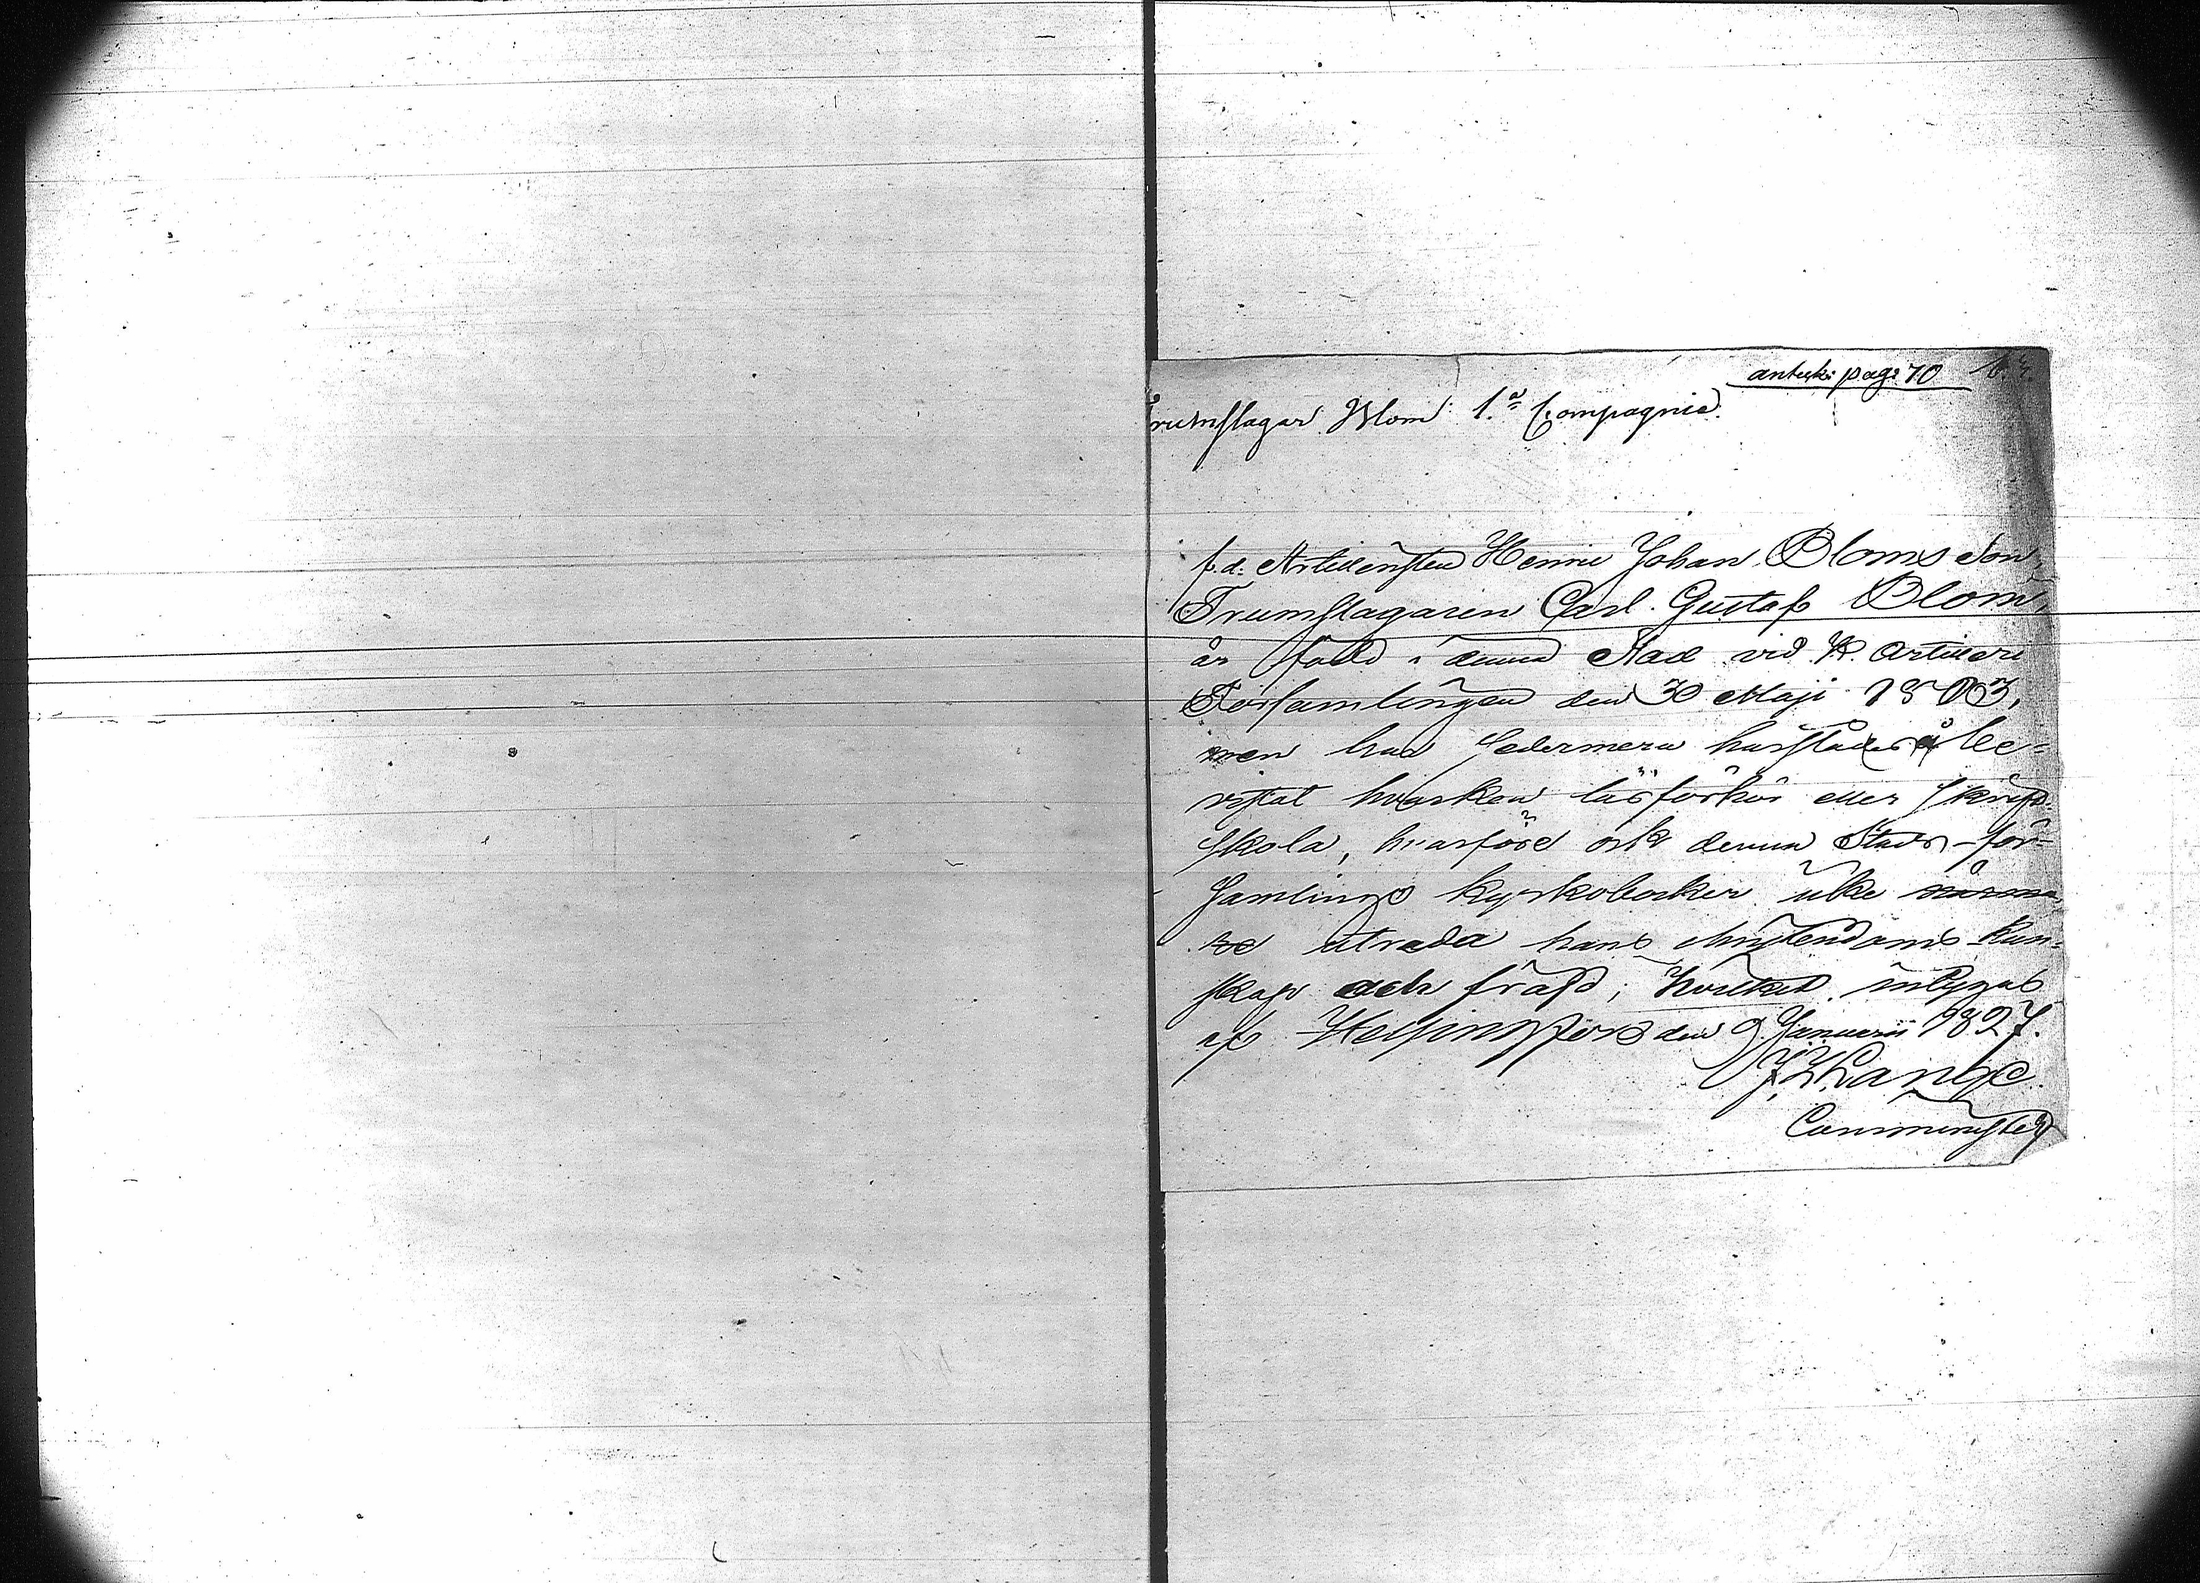 anteckn: pag: 70
Trumslagar Blom 1.a Compagnie.
f. d. Artilleristen Henric Johan Bloms Son,
Trumslagaren Carl Gustaf Blom,
är född i denna Stad vid K. Artilleri
Församlingen den 30 Maji 1803,
men har sedermera härstädes be-
vistat hvarken läsförhör eller skrift-
skola, hvarföre ock denna Stads för-
samlings kyrkoböcker icke
utreda hans christendoms kun-
skap och frägd; hvilket intygas
af Helsingfors den 9 Januarii 1827.
Comminister